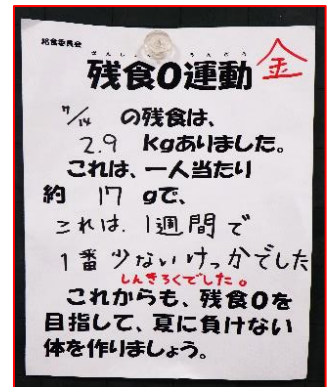 給食委員会
ざんしょく うんどう
残食0運動 金
7/14 の残食は、
2.9 kgありました。
これは、一人当たり
約 17 gで、
これは、1週間で
1番少ないけっかでした
しんきろくでした。
これからも、残食0を
目指して、夏に負けない
体を作りましょう。